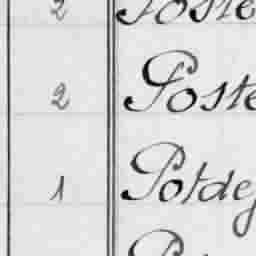 2 Poste
2 Poste
1 Potdej